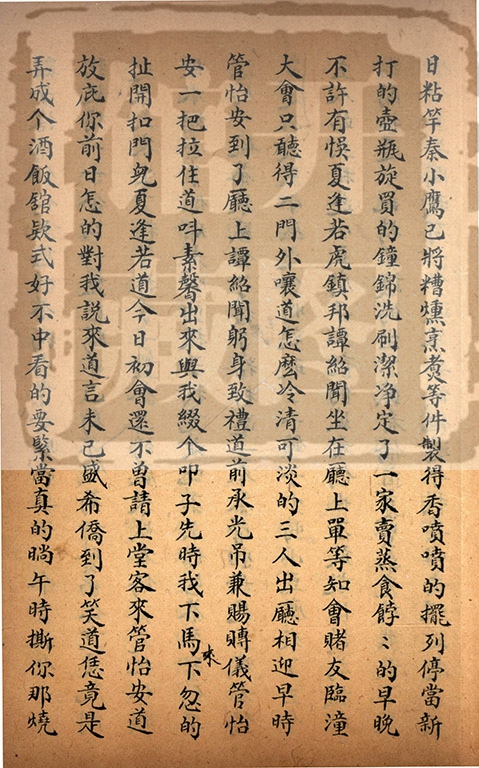 日粘竿秦小鷹已將糟燻烹煑等件製得香噴噴的擺列停當新
打的壺瓶旋買的鐘錦洗刷潔净定了一家賣蒸食餑〻的早晚
不許有悞夏逢若虎鎮邦譚紹聞坐在廳上單等知會賭友臨潼
大會只聽得二門外嚷道怎麽冷清可淡的三人出廳相迎早時
管怡安到了廳上譚紹聞躬身致禮道前承光吊兼賜賻儀管怡
安一把拉住道呌素馨出來與我綴个叩子先時我下馬下來忽的
扯開扣門兒夏逢若道今日初會還不曾請上堂客來管怡安道
放庇你前日怎的對我説來道言未已盛希僑到了笑道恁竟是
弄成个酒飯舘欵式好不中看的要緊當真的晌午時撕你那燒